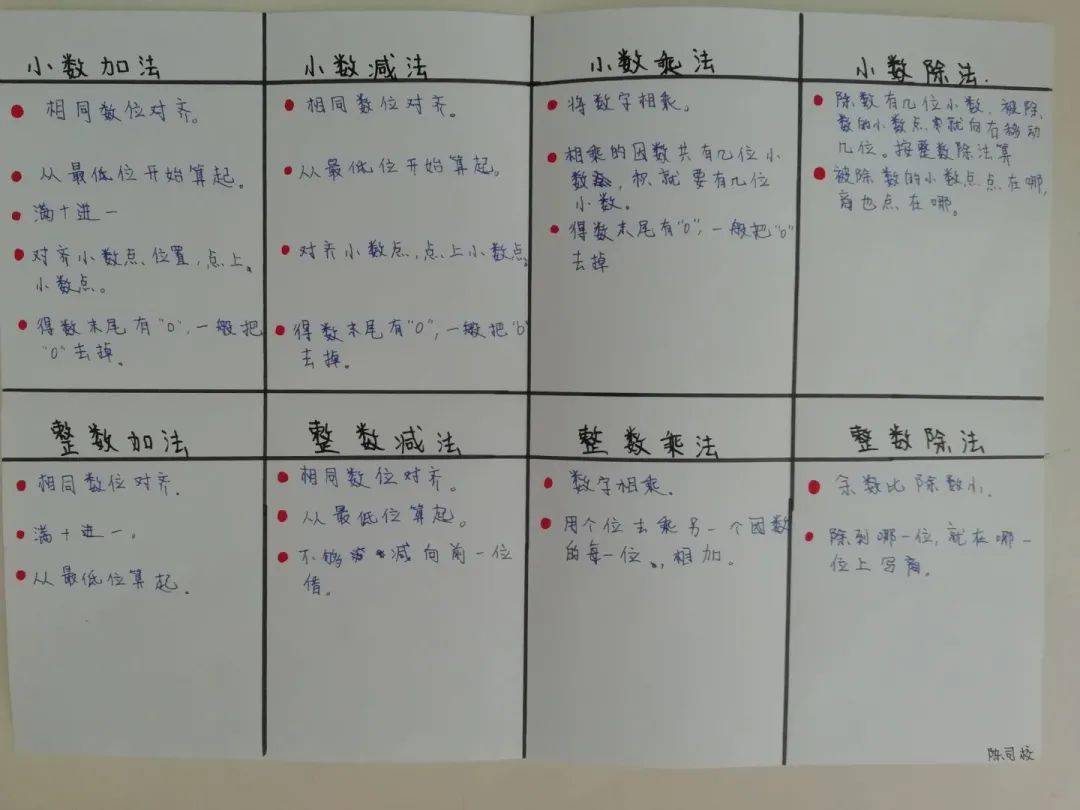 小数加法
相同数位对齐。
从最低位开始算起。
满十进一
对齐小数点、位置,点上。
小数点。
得数末尾有"0",一般把
"0"去掉。
小数减法
相同数位对齐。
从最低位开始算起。
对齐小数点,点上小数点。
得数末尾有"0",一般把"0"
去掉。
小数乘法
将数字相乘。
相乘的因数共有几位小
数,积就要有几位
小数。
得数末尾有"0",一般把"0"
去掉
小数除法.
除数有几位小数,被除
数的小数点就向右移动
几位。按整数除法算
被除数的小数点点在哪,
商也点在哪。
整数加法
相同数位对齐.
满十进一。
从最低位算起.
整数减法
相同数位对齐。
从最低位算起。
不够减向前一位
借。
整数乘法
数字相乘.
用个位去乘另一个因数
的每一位、,相加。
整数除法
余数比除数小.
除到哪一位,就在哪一
位上写商。
陈司